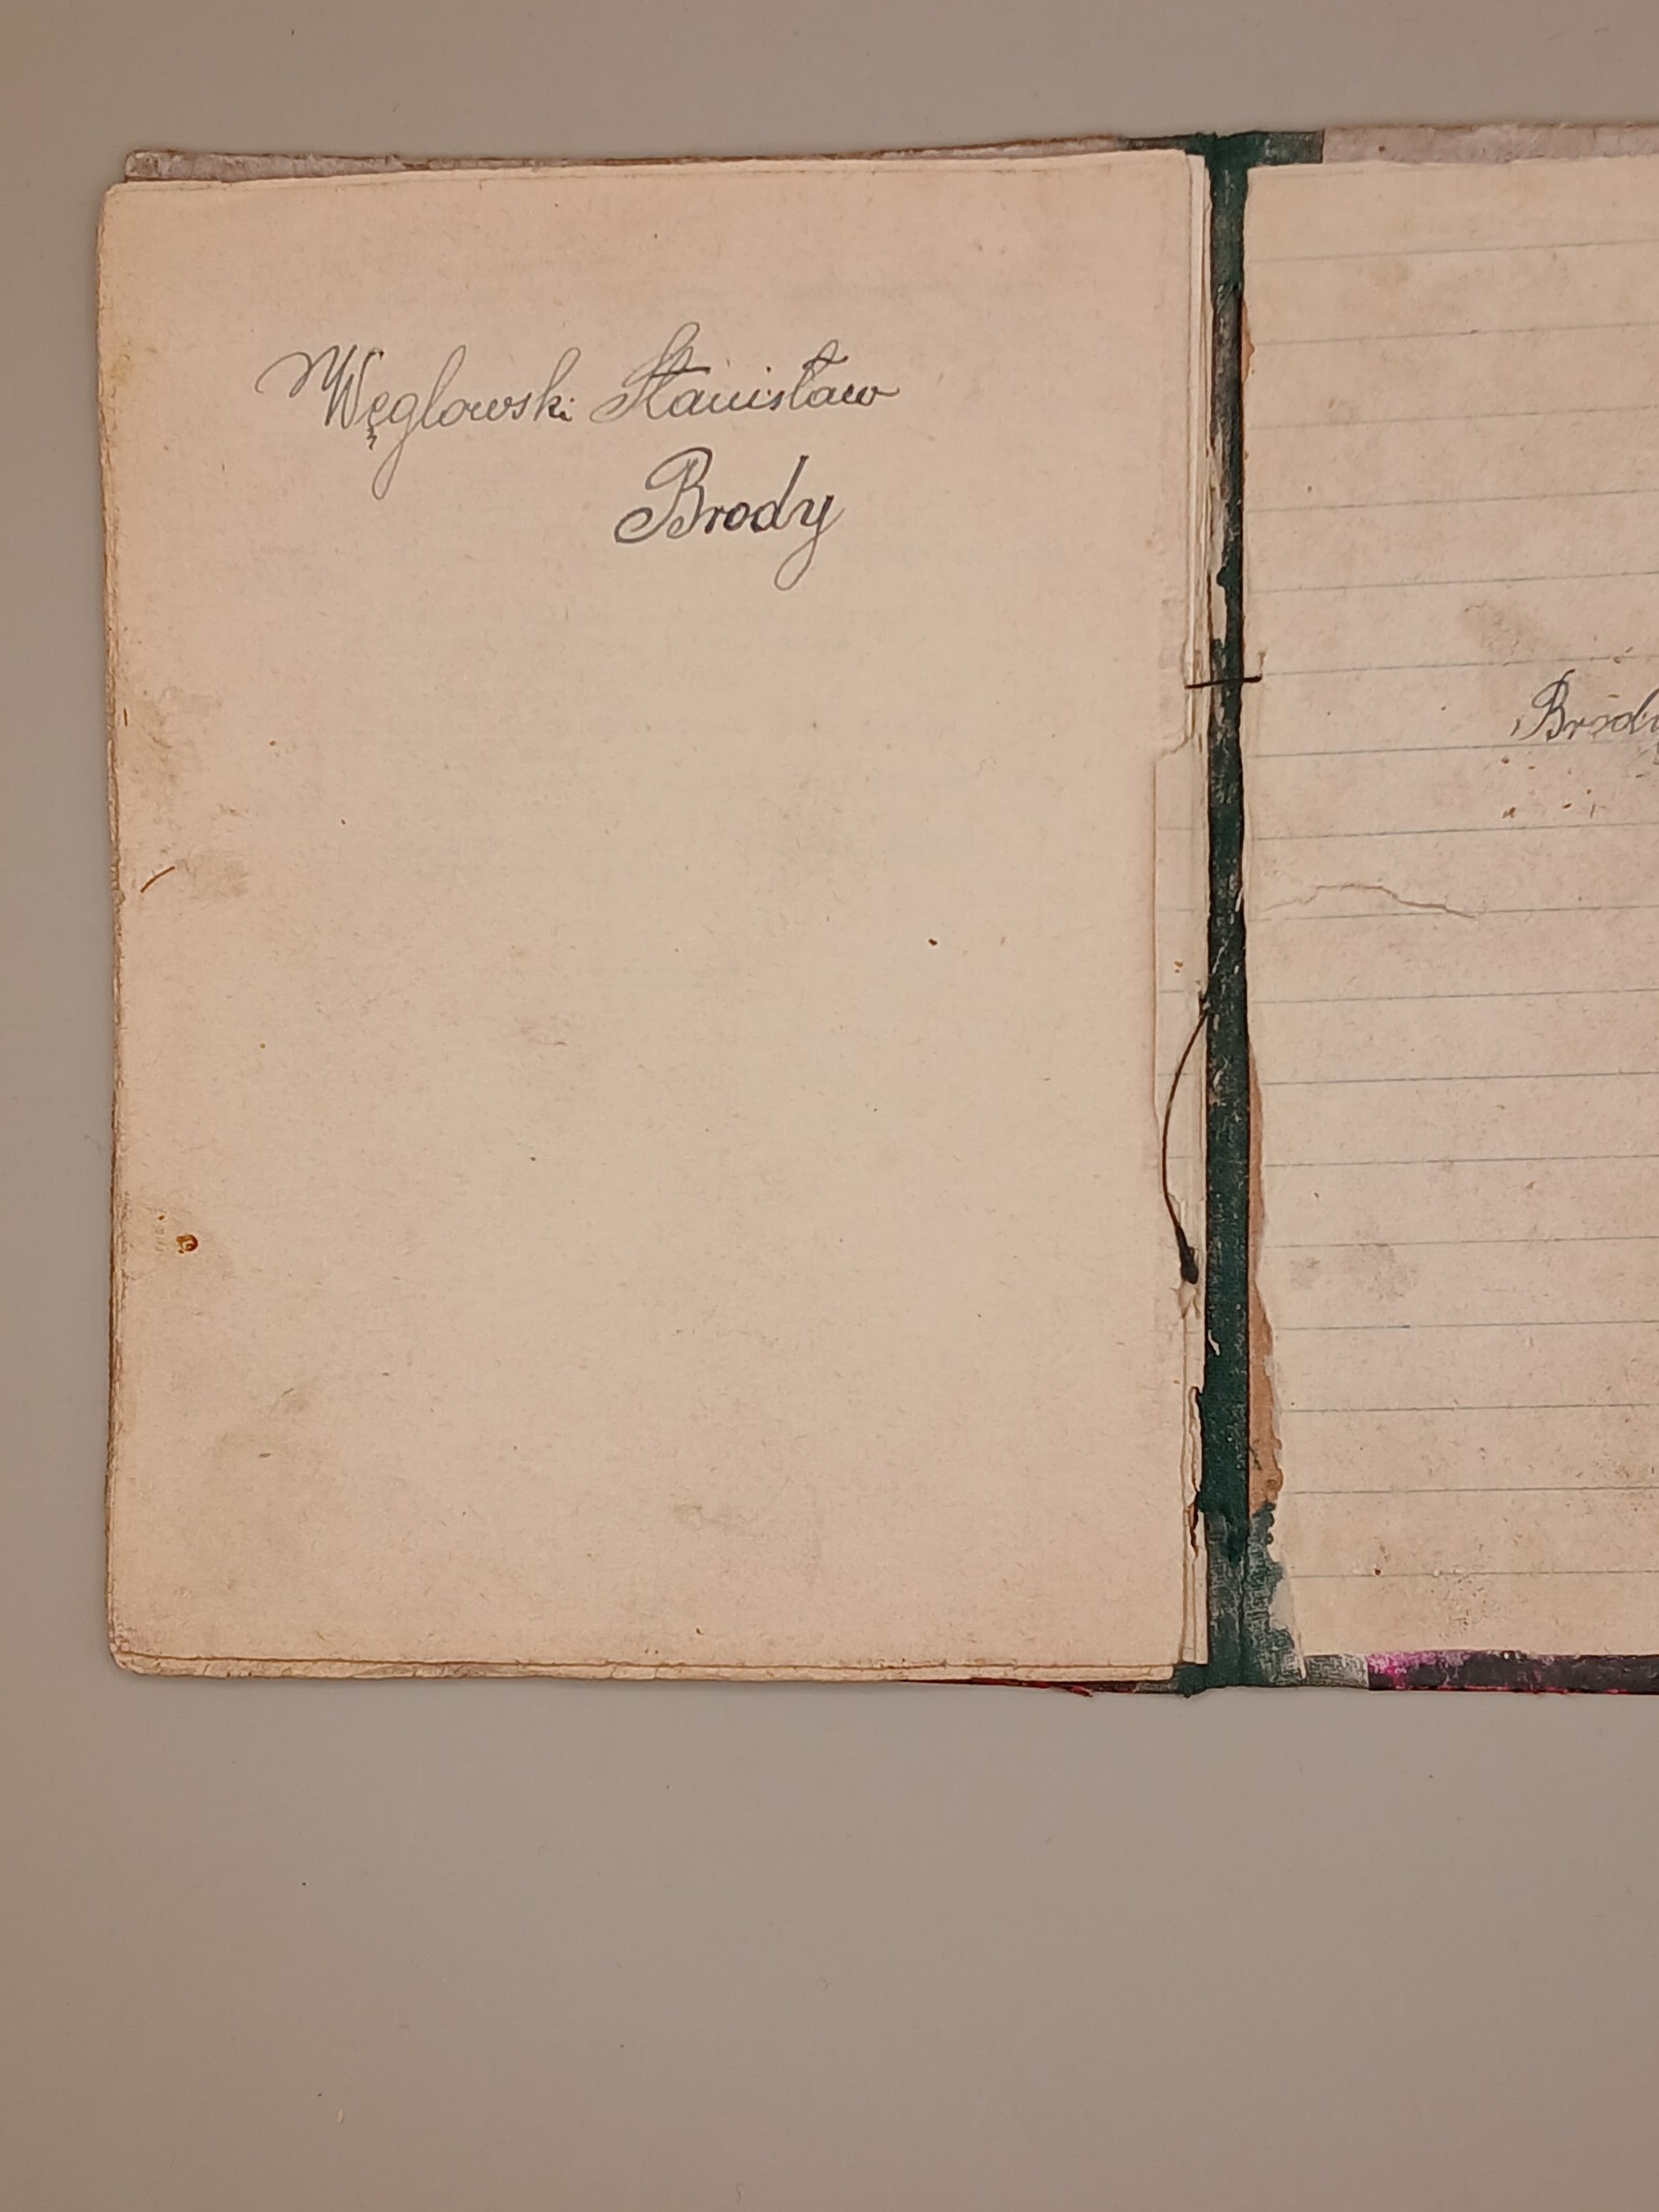 Węglowski Stanisław
Brody
Brody